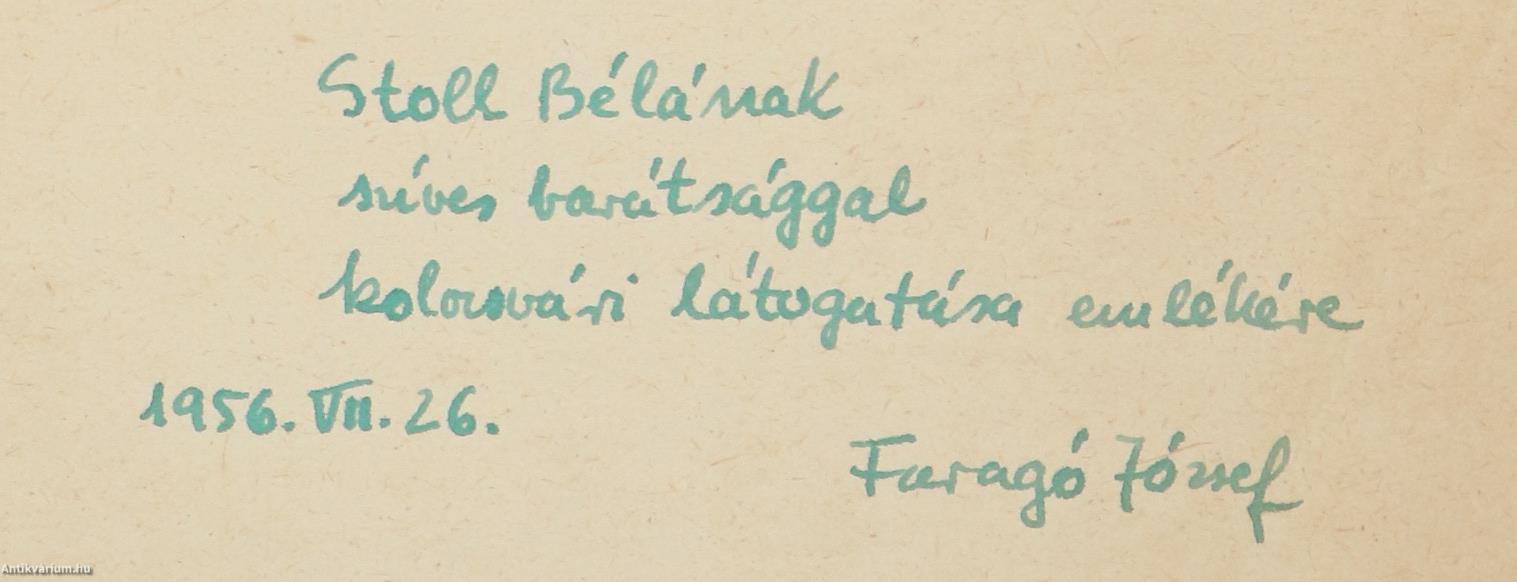 Stoll Bélának
szíves barátsággal
kolozsvári látogatása emlékére
1956. VII. 26.
Faragó József
Antikvarium.hu